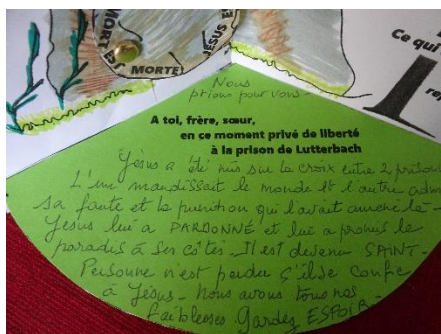 MORT
JESUS
MORTE
Ce qui
Nous
prions pour vous-
A toi, frère, sœur,
en ce moment privé de liberté
à la prison de Lutterbach
Jésus a été mis sur la croix entre 2 prison
L'un maudissait le monde et l'autre adm
sa faute et la punition qui l'avait amené là-
Jésus lui a PARDONNÉ et lui a promis le
paradis à ses côtés. Il est devenu SAINT-
Personne n'est perdu s'il se confie
à Jésus- Nous avons tous nos
faiblesses Gardez ESPOIR-